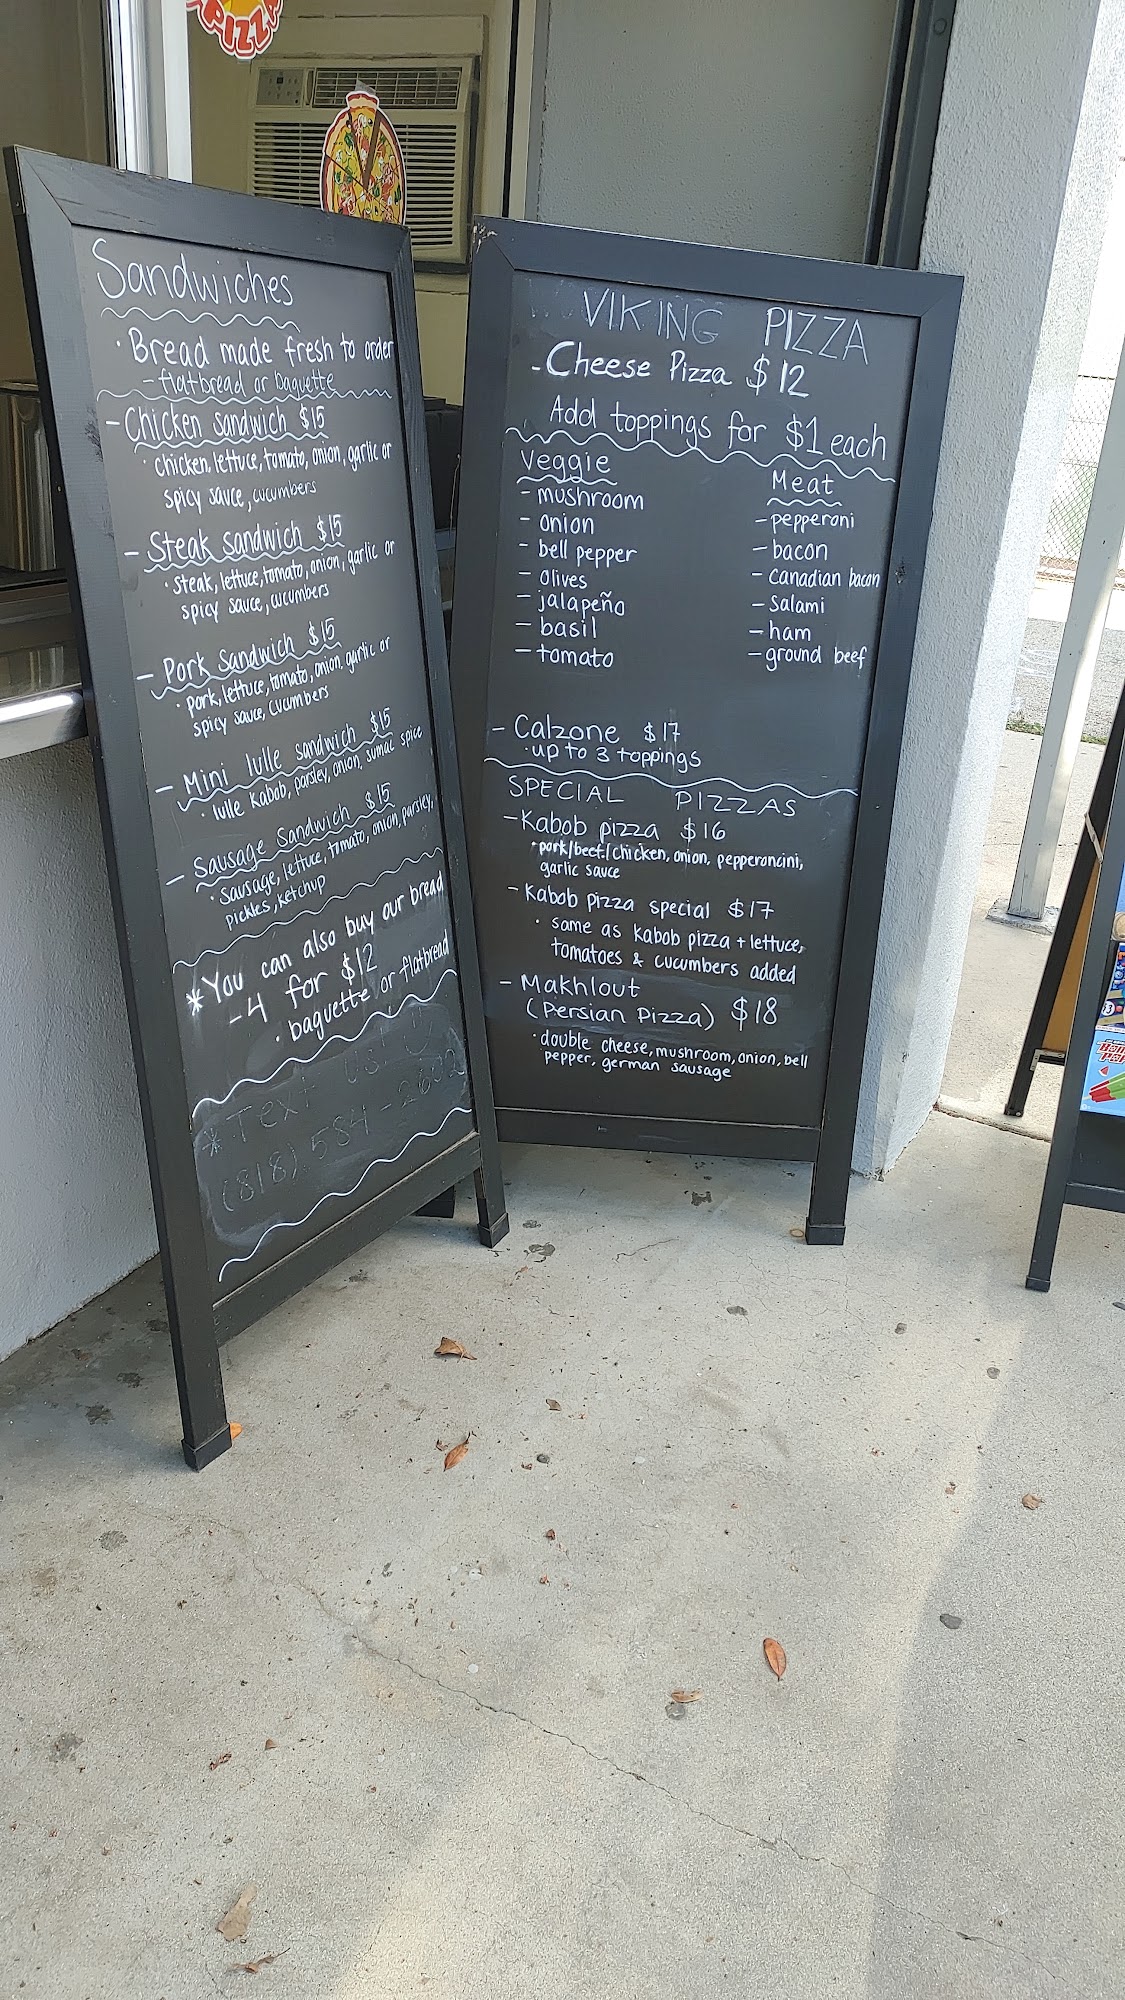 PIZZA
Sandwiches
· Bread made fresh to order
- flatbread or baguette
- Chicken sandwich $15
· chicken, lettuce, tomato, onion, garlic or
spicy sauce, cucumbers
- Steak sandwich $15
· steak, lettuce, tomato, onion, garlic or
spicy sauce, cucumbers
- Pork Sandwich $15
· pork, lettuce, tomato, onion, garlic or
spicy sauce, cucumbers
- Mini lulle sandwich $15
· lulle kabob, parsley, onion, sumac spice
- Sausage Sandwich $15
· sausage, lettuce, tomato, onion, parsley,
pickles, ketchup
* You can also buy our bread
- 4 for $12
· baguette or flatbread
* Text us!
(818) 554-2602
VIKING PIZZA
- Cheese Pizza $12
Add toppings for $1 each
Veggie
- mushroom
- onion
- bell pepper
- olives
- jalapeño
- basil
- tomato
Meat
- pepperoni
- bacon
- canadian bacon
- salami
- ham
- ground beef
- Calzone $17
· up to 3 toppings
SPECIAL PIZZAS
- Kabob pizza $16
· pork/beef/chicken, onion, pepperoncini,
garlic sauce
- Kabob pizza special $17
· same as kabob pizza + lettuce,
tomatoes & cucumbers added
- Makhlout
(Persian Pizza) $18
· double cheese, mushroom, onion, bell
pepper, german sausage